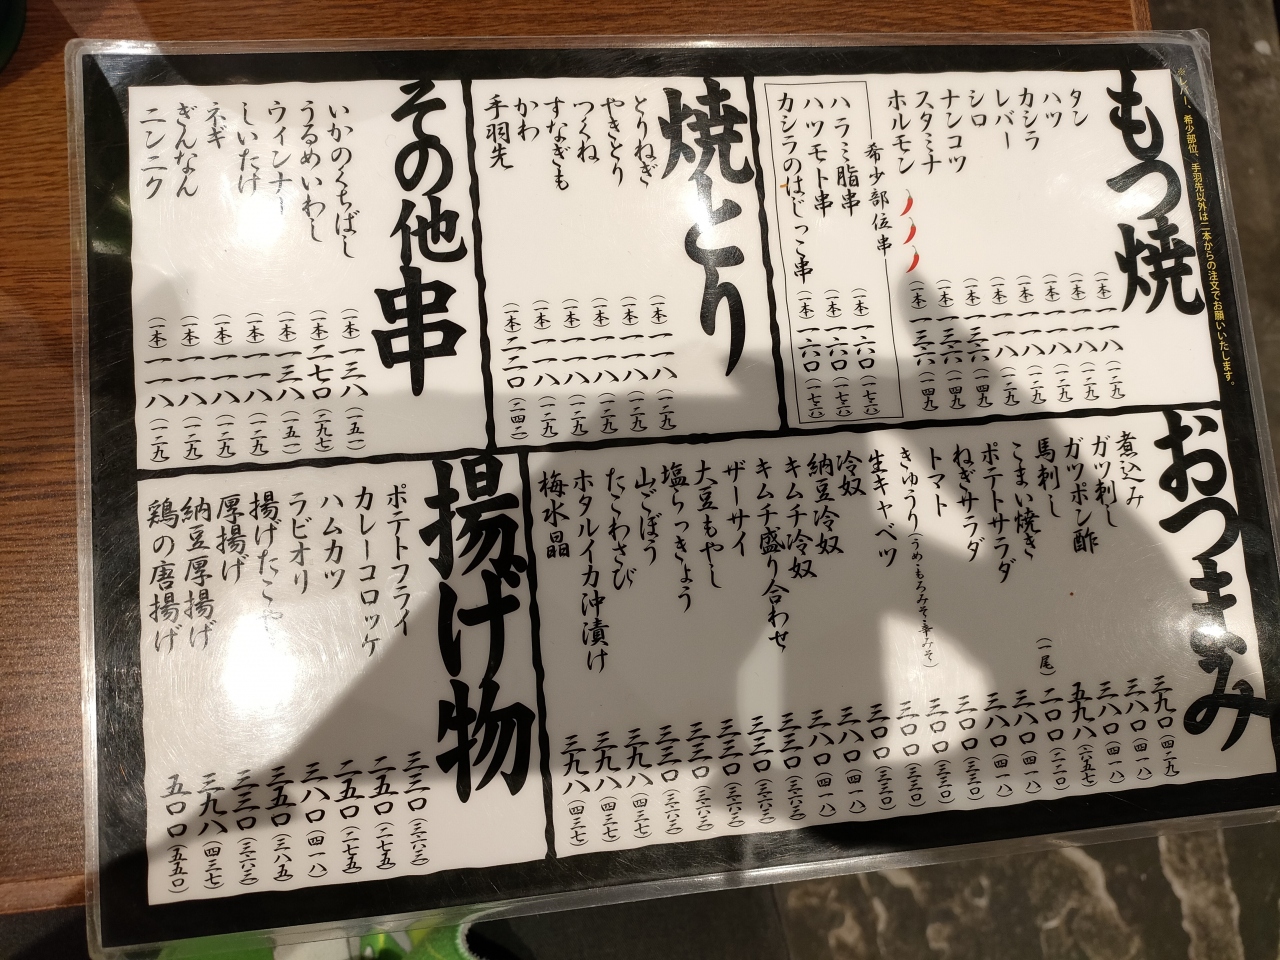 ※レバー、希少部位、手羽先以外は二本からの注文でお願いいたします。
もつ焼
タン (一本) 一一八 (一二九)
ハツ (一本) 一一八 (一二九)
カシラ (一本) 一一八 (一二九)
レバー (一本) 一一八 (一二九)
シロ (一本) 一一八 (一二九)
ナンコツ (一本) 一三六 (一四九)
スタミナ (一本) 一三六 (一四九)
ホルモン (一本) 一三六 (一四九)
希少部位串
ハラミ脂串 (一本) 一六〇 (一七六)
ハツモト串 (一本) 一六〇 (一七六)
カシラのはじっこ串 (一本) 一六〇 (一七六)
焼とり
とりねぎ (一本) 一一八 (一二九)
やきとり (一本) 一一八 (一二九)
つくね (一本) 一一八 (一二九)
すなぎも (一本) 一一八 (一二九)
かわ (一本) 一一八 (一二九)
手羽先 (一本) 二二〇 (二四二)
その他串
いかのくちばし (一本) 一三八 (一五一)
うるめいわし (一本) 二七〇 (二九七)
ウィンナー (一本) 一三八 (一五一)
しいたけ (一本) 一一八 (一二九)
ネギ (一本) 一一八 (一二九)
ぎんなん (一本) 一一八 (一二九)
ニンニク (一本) 一一八 (一二九)
おつまみ
煮込み 三九〇 (四二九)
ガツ刺し 三八〇 (四一八)
ガツポン酢 三八〇 (四一八)
馬刺し 五九八 (六五七)
こまい焼き (一尾) 二〇〇 (二二〇)
ポテトサラダ 三八〇 (四一八)
ねぎサラダ 三八〇 (四一八)
トマト 三〇〇 (三三〇)
きゅうり (うめ・もろみそ・辛みそ) 三〇〇 (三三〇)
生キャベツ 三〇〇 (三三〇)
冷奴 三〇〇 (三三〇)
納豆冷奴 三八〇 (四一八)
キムチ冷奴 三八〇 (四一八)
キムチ盛り合わせ 三三〇 (三六三)
ザーサイ 三三〇 (三六三)
大豆もやし 三三〇 (三六三)
塩らっきょう 三三〇 (三六三)
山ごぼう 三三〇 (三六三)
たこわさび 三九八 (四三七)
ホタルイカ沖漬け 三九八 (四三七)
梅水晶 三九八 (四三七)
揚げ物
ポテトフライ 三三〇 (三六三)
カレーコロッケ 二五〇 (二七五)
ハムカツ 二五〇 (二七五)
ラビオリ 三八〇 (四一八)
揚げたこや 三五〇 (三八五)
厚揚げ 三三〇 (三六三)
納豆厚揚げ 三九八 (四三七)
鶏の唐揚げ 五〇〇 (五五〇)